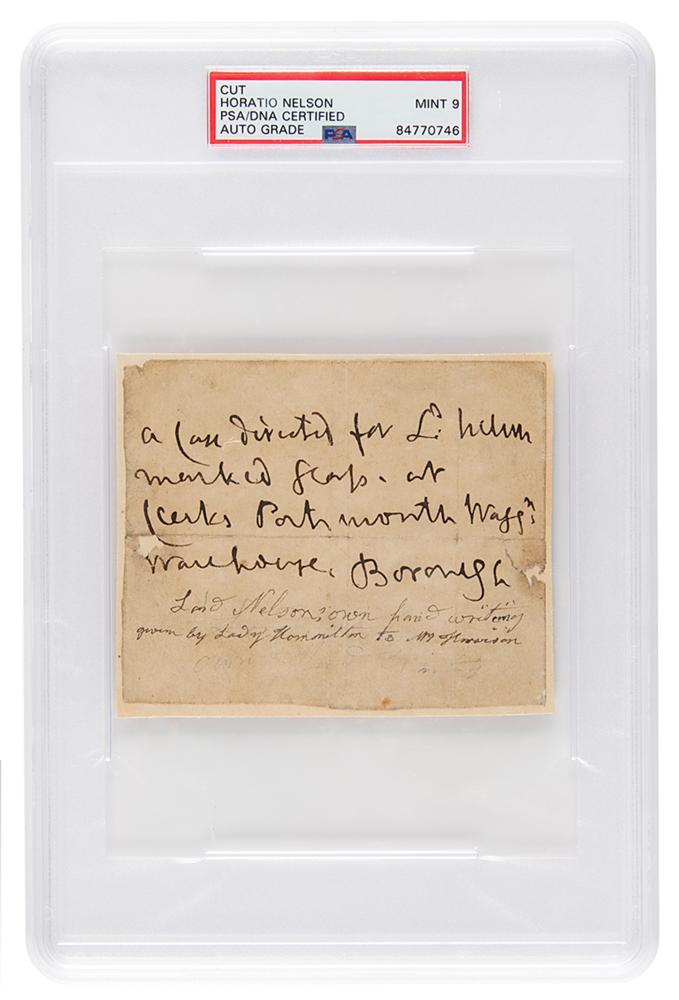 CUT
HORATIO NELSON
PSA/DNA CERTIFIED
AUTO GRADE
PSA
MINT 9
84770746
a Case directed for Ld: Nelson
marked Glass. at
Clerks Portsmouth Waggn:
Warehouse, Borough
Lord Nelsons own hand writing
given by Lady Hammilton to Mr Harrison